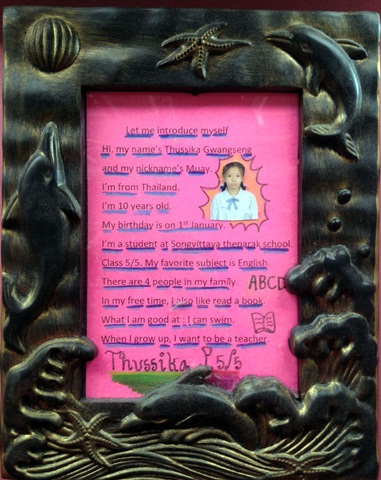 Let me introduce myself
Hi, my name's Thussika Gwangseng
and my nickname's Muay.
I'm from Thailand.
I'm 10 years old.
My birthday is on 1st January.
I'm a student at Songvittaya theparak school.
Class 5/5. My favorite subject is English.
There are 4 people in my family.
ABCD
In my free time, I also like read a book.
What I am good at : I can swim.
When I grow up, I want to be a teacher.
Thussika P 5/5